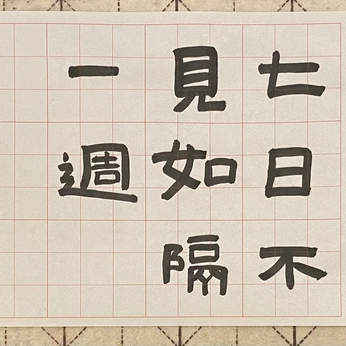 七日不
見如隔
一週